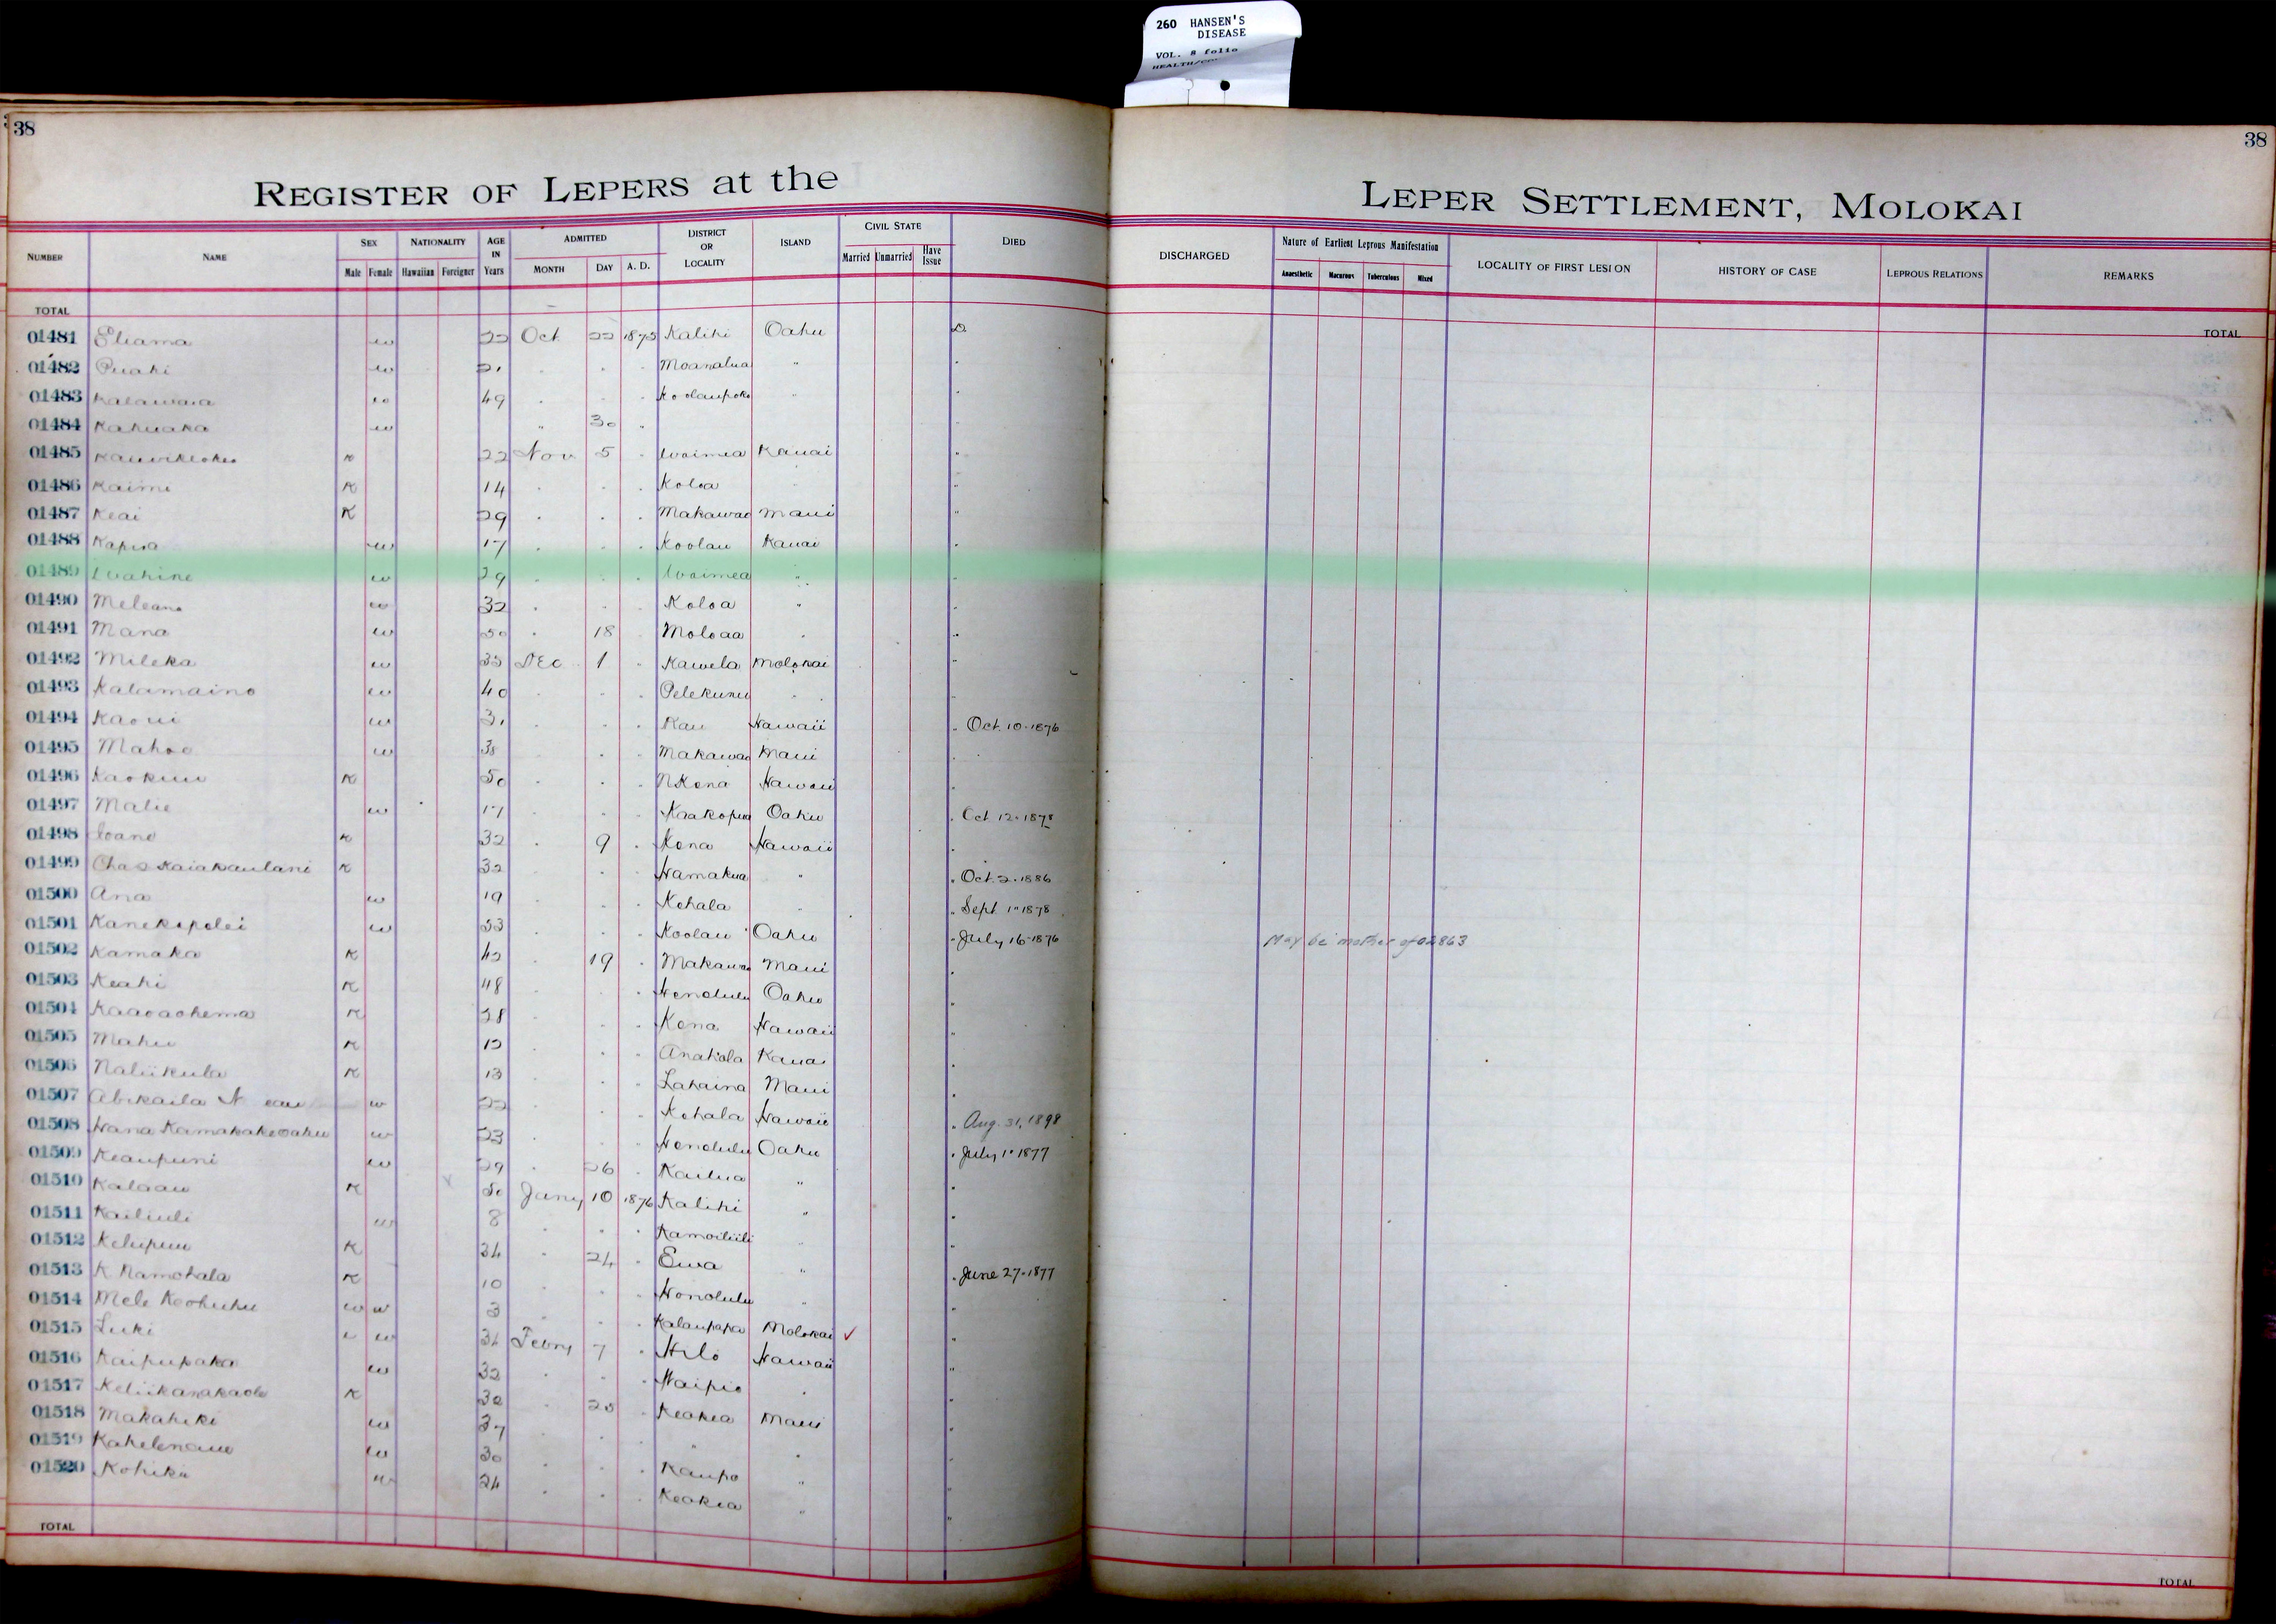 260 HANSEN'S
DISEASE
VOL. 8 folio
38
38
REGISTER OF LEPERS at the
LEPER SETTLEMENT, MOLOKAI
NUMBER NAME SEX Male Female NATIONALITY Hawaiian Foreigner AGE IN Years ADMITTED MONTH DAY A. D. DISTRICT OR LOCALITY ISLAND CIVIL STATE Married Unmarried Have Issue DIED
DISCHARGED Nature of Earliest Leprous Manifestation Anaesthetic Macurous Tuberculous Mixed LOCALITY OF FIRST LESION HISTORY OF CASE LEPROUS RELATIONS REMARKS
TOTAL
TOTAL
01481 Eliama w 22 Oct 22 1875 Kalihi Oahu D
01482 Puahi w 21 . . . Moanalua "
01483 Kalawaia w 49 . . . Koolaupoko "
01484 Kahuaka w " 30 "
01485 K 22 Nov 5 " Waimea Kauai "
01486 Kaimi K 14 . . . Koloa "
01487 Keai K 29 . . . Makawao Maui "
01488 Kapua w 17 . . . Koolau Kauai "
01489 Wahine w 29 . . . Waimea " "
01490 Meleana w 32 . . . Koloa " "
01491 Mana w 50 . 18 Moloaa . "
01492 Mileka w 35 Dec 1 " Kawela Molokai "
01493 Kalamaino w 40 . . . Pelekunu . "
01494 Kaoui w 31 . . . Kau Hawaii " Oct. 10-1876
01495 Mahoe w 38 . . Makawao Maui .
01496 Kaokuu K 50 . . . N Kona Hawaii "
01497 Malie w 17 . . Kaakopua Oahu " Oct 12-1878
01498 Ioane K 32 . 9 . Kona Hawaii "
01499 Chas Kaiakaulani K 32 . . . Hamakua " " Oct. 2-1886
01500 Ana w 19 . . . Kohala " " Sept 1-1878
01501 Kanekapolei w 53 . . . Koolau Oahu " July 16-1876 May be mother of 02863
01502 Kamaka K 42 . 19 . Makawao Maui "
01503 Keahi K 48 . . . Honolulu Oahu "
01504 Kaaoaohema K 28 . . . Kona Hawaii "
01505 Mahu K 12 . . . Anahola Kauai "
01506 Naliikula K 13 . . . Lahaina Maui "
01507 Abikaila N eau w 22 . . . Kohala Hawaii " Aug. 31, 1898
01508 Hana Kamakakeoahu w 23 . . . Honolulu Oahu " July 1-1877
01509 Keaupuni w 29 . 26 . Kailua " "
01510 Kalaau K 50 Jany 10 1876 Kalihi " "
01511 Kailiuli w 8 . . . Kamoiliili " "
01512 Kelupuu K 34 . 24 . Ewa " " June 27-1877
01513 K Namohala K 10 . . . Honolulu " "
01514 Mele Keohuhu w w 3 . . . Kalaupapa Molokai ✓ "
01515 Luki w 34 Febry 7 . Hilo Hawaii "
01516 Kaipupaka w 32 . . . Waipio . "
01517 Keliikanakaole K 30 . 20 . Keokea Maui "
01518 Makahiki w 37 . . . " . "
01519 w 30 . . . Kaupo " "
01520 Kohika w 24 . . . Keokea " "
TOTAL
TOTAL